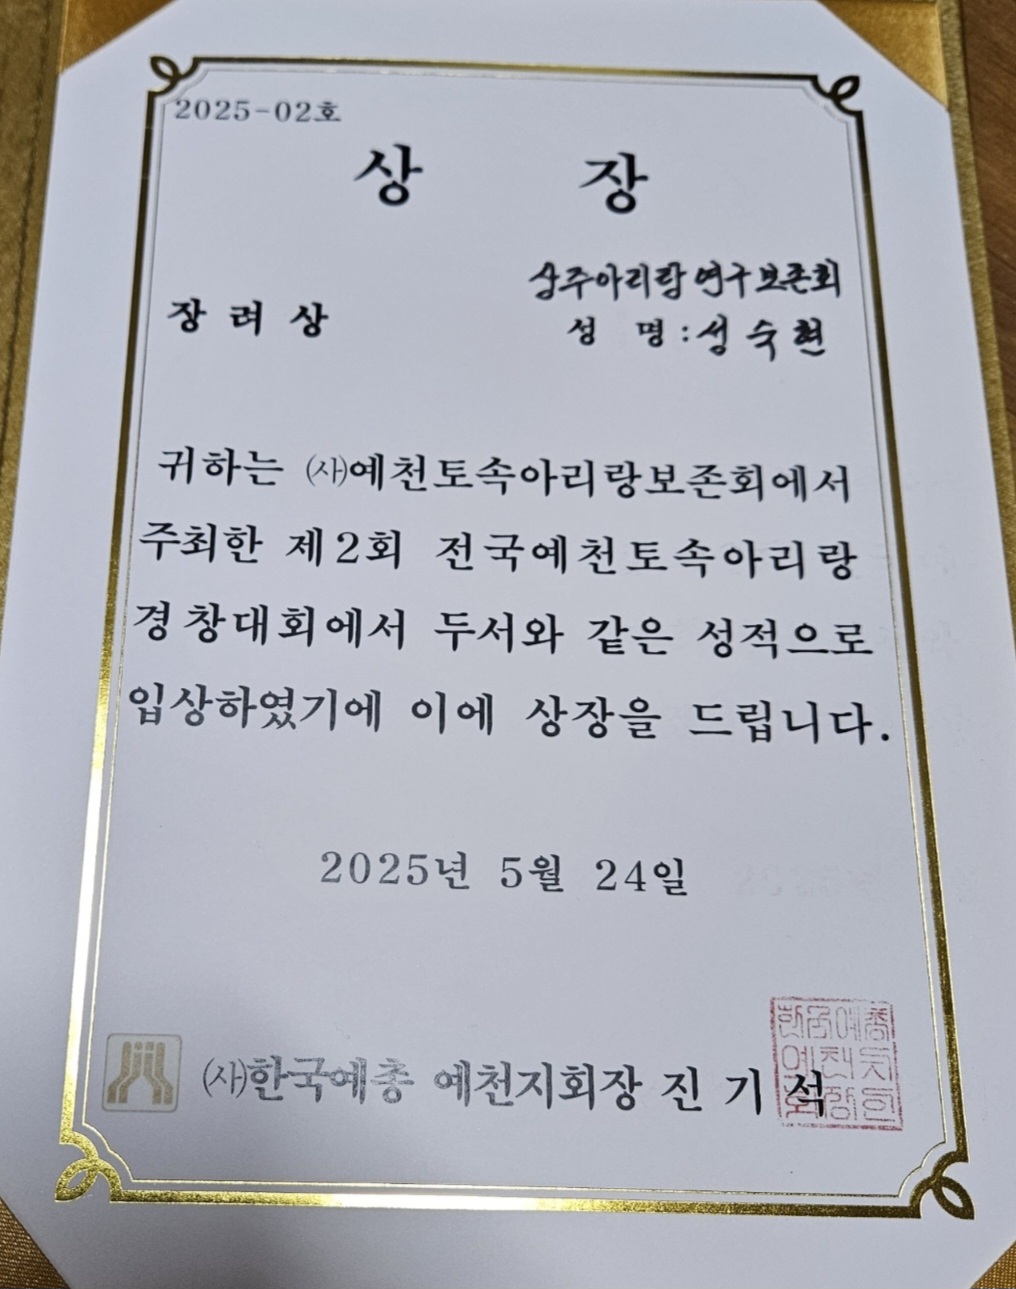 2025-02호
상 장
장려상
상주아리랑연구보존회
성 명 : 성숙현
귀하는 ㈔예천토속아리랑보존회에서
주최한 제2회 전국예천토속아리랑
경창대회에서 두서와 같은 성적으로
입상하였기에 이에 상장을 드립니다.
2025년 5월 24일
㈔한국예총 예천지회장 진 기 석